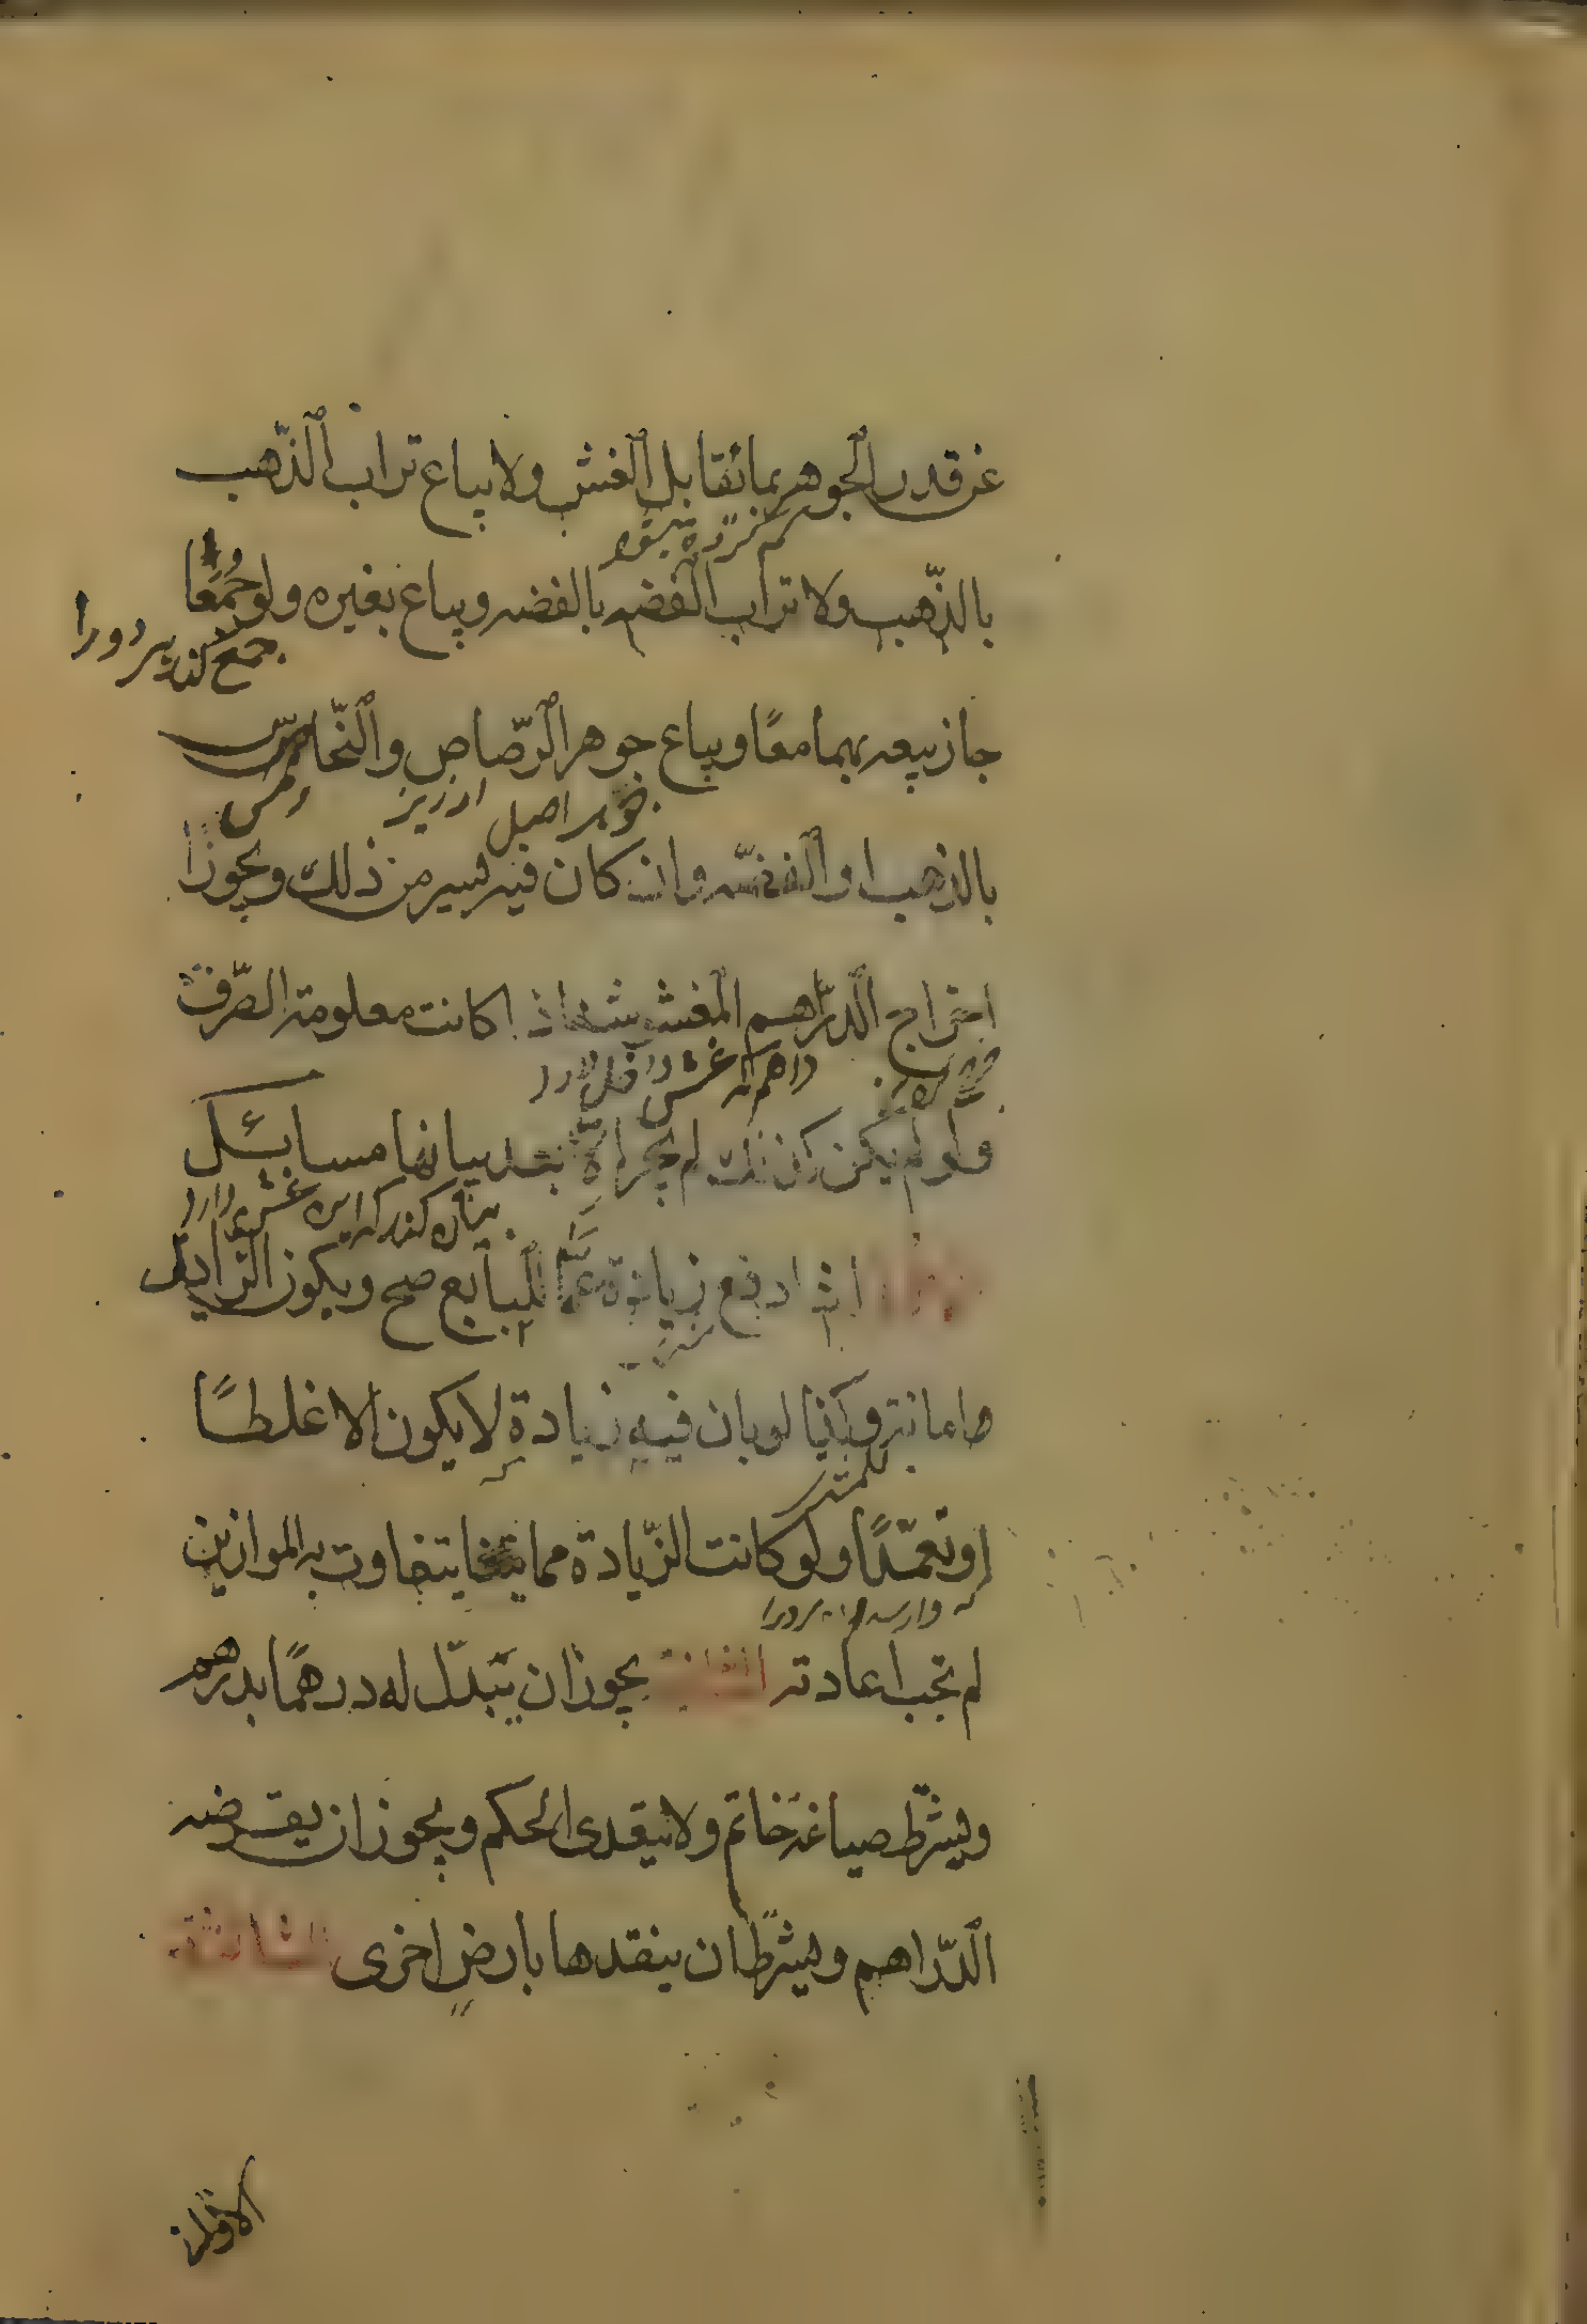 عن قدر الجوهر بما يقابل الغش ولا يباع تراب الذهب
بالذهب ولا تراب الفضه بالفضه ويباع بغيره ولو جمعا
جمع كند هر دو را
جاز بيعه بهما معًا ويباع جوهر الرّصاص والنّحاس
جوهر اصل ارزيز مس
بالذهب او الفضّه وان كان فيه يسير من ذلك ويجوز
اخراج الدّراهم المغشوشه اذا كانت معلومة الصّرف
ولو لم يكن كذلك لم يجز الا بعد بيانها مسايئل
بيان كند كه اين غش دارد
اذا دفع زيادة عمّا للبايع صح ويكون الزايد
امانة وكذا لو بان فيه زيادة لا يكون الا غلطًا
او تعمّدًا ولو كانت الزّيادة مما يتفاوت به الموازين
لم تجب اعادته الثانية يجوز ان يبدّل له درهمًا بدرهم
ويشترط صياغة خاتم ولا يتعدى الحكم ويجوز ان يقرضه
الدّراهم ويشترط ان ينقدها بارض اخرى الثالثة
الاوانى